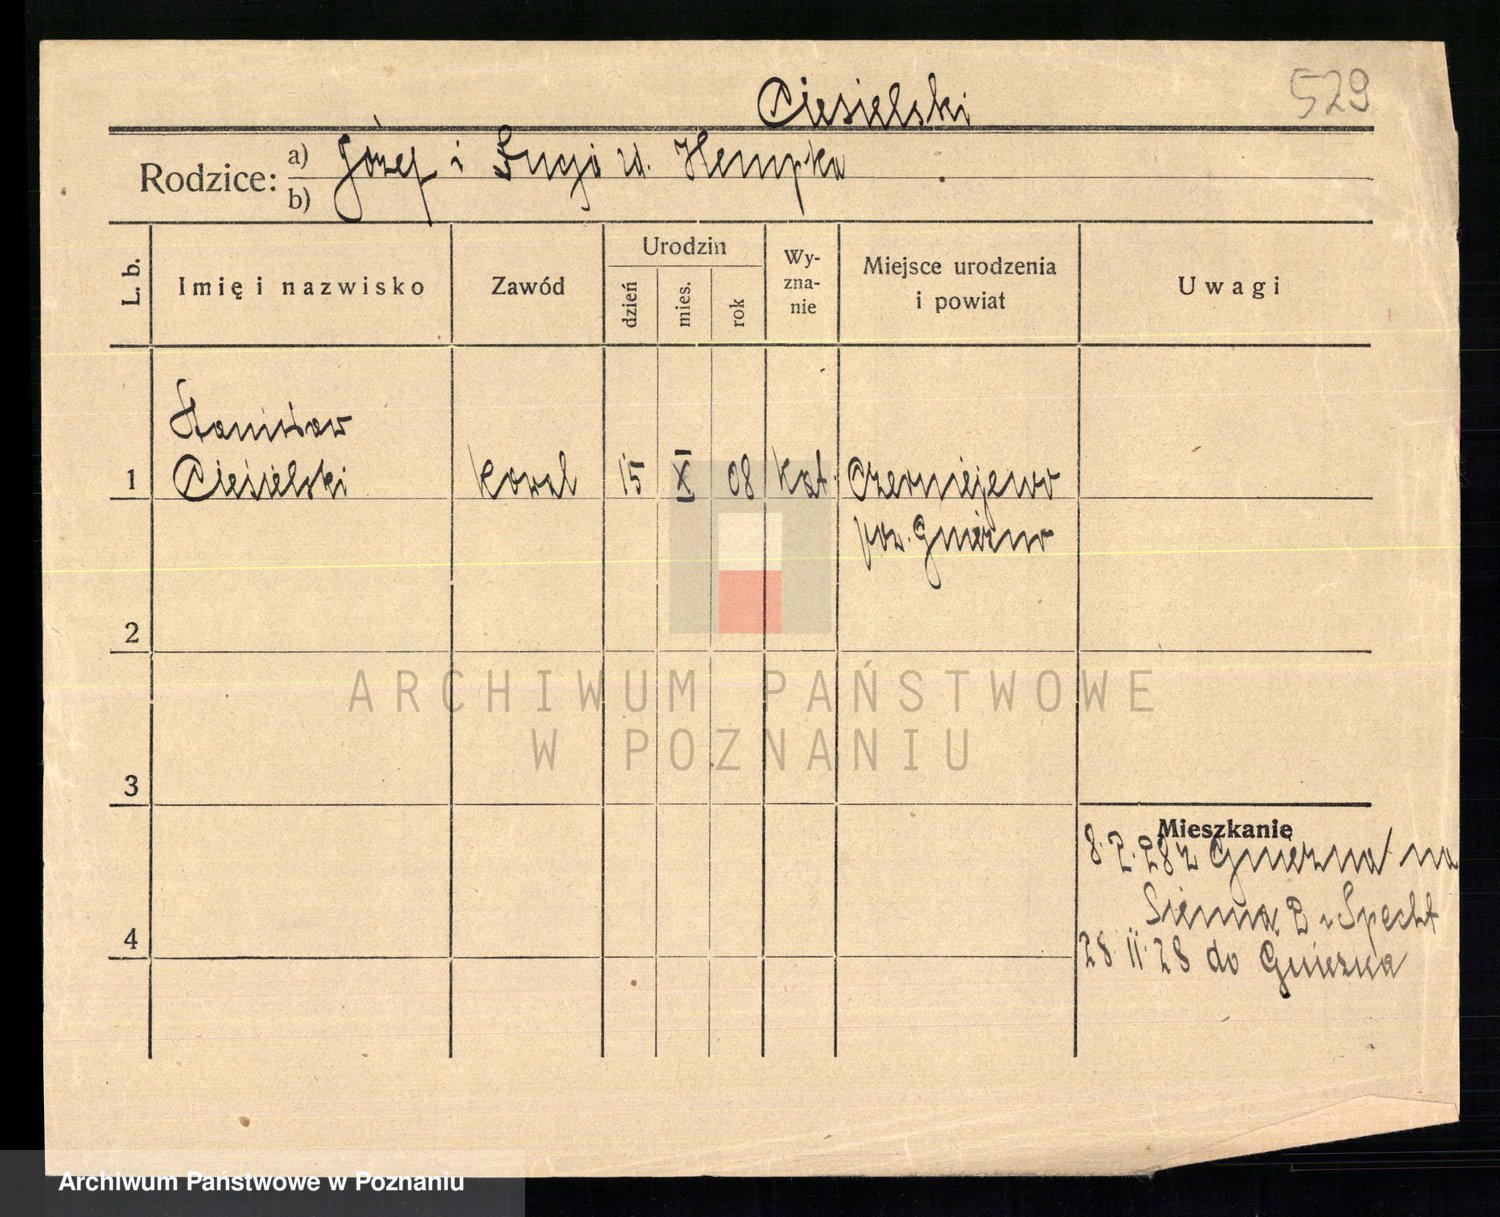 529
Ciesielski
Rodzice: a) Józef i Łucja zd. Hempka
b)
L. b. Imię i nazwisko Zawód Urodzin dzień mies. rok Wyznanie Miejsce urodzenia i powiat Uwagi
Stanisław
1 Ciesielski Kowal 15 X 08 Kat. Czerniejewo
pow. Gniezno
2
ARCHIWUM PAŃSTWOWE
W POZNANIU
3
Mieszkanie
8. 2. 28 z Gniezna na
Sienna 2 Specht
4
28 II 28 do Gniezna
Archiwum Państwowe w Poznaniu